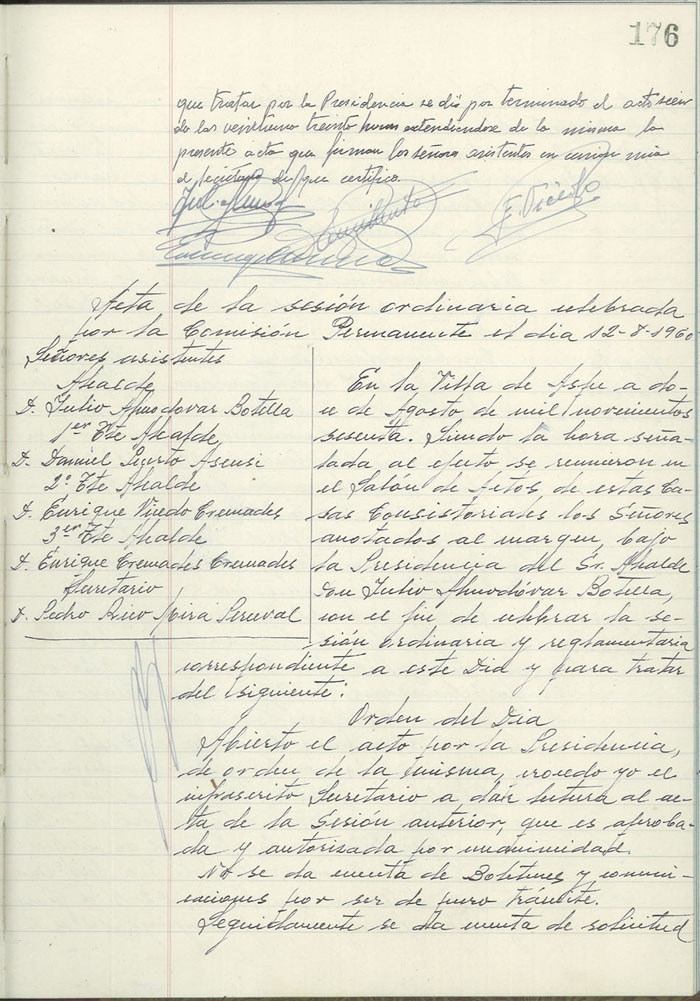 176
que tratar por la Presidencia se dió por terminado el acto sien
do las veintiuna treinta horas extendiendose de la misma la
presente acta que firman los señores asistentes
el secretario de que certifico.
E. Vicedo
Acta de la sesión ordinaria celebrada
por la Comisión Permanente el dia 12-8-1960
Señores asistentes
Alcalde
D. Julio Almodovar Botella
1er Tte Alcalde
D. Daniel Asensi
2º Tte Alcalde
D. Enrique Vicedo Cremades
3er Tte Alcalde
D. Enrique Cremades Cremades
Secretario
D. Pedro Rico Mira Perceval
En la Villa de Aspe a do-
ce de Agosto de mil novecientos
sesenta. Siendo la hora seña-
lada al efecto se reunieron en
el Salón de Actos de estas Ca-
sas Consistoriales los Señores
anotados al margen, bajo
la Presidencia del Sr. Alcalde
Don Julio Almodóvar Botella,
con el fin de celebrar la se-
sión ordinaria y reglamentaria
correspondiente a este Dia y para tratar
del siguiente:
Orden del Dia
Abierto el acto por la Presidencia,
de orden de la misma, procedo yo el
infrascrito Secretario a dar lectura al ac-
ta de la Sesión anterior, que es aproba-
da y autorizada por unanimidad.
No se da cuenta de Boletines y comuni-
caciones por ser de puro trámite.
Seguidamente se da cuenta de solicitud